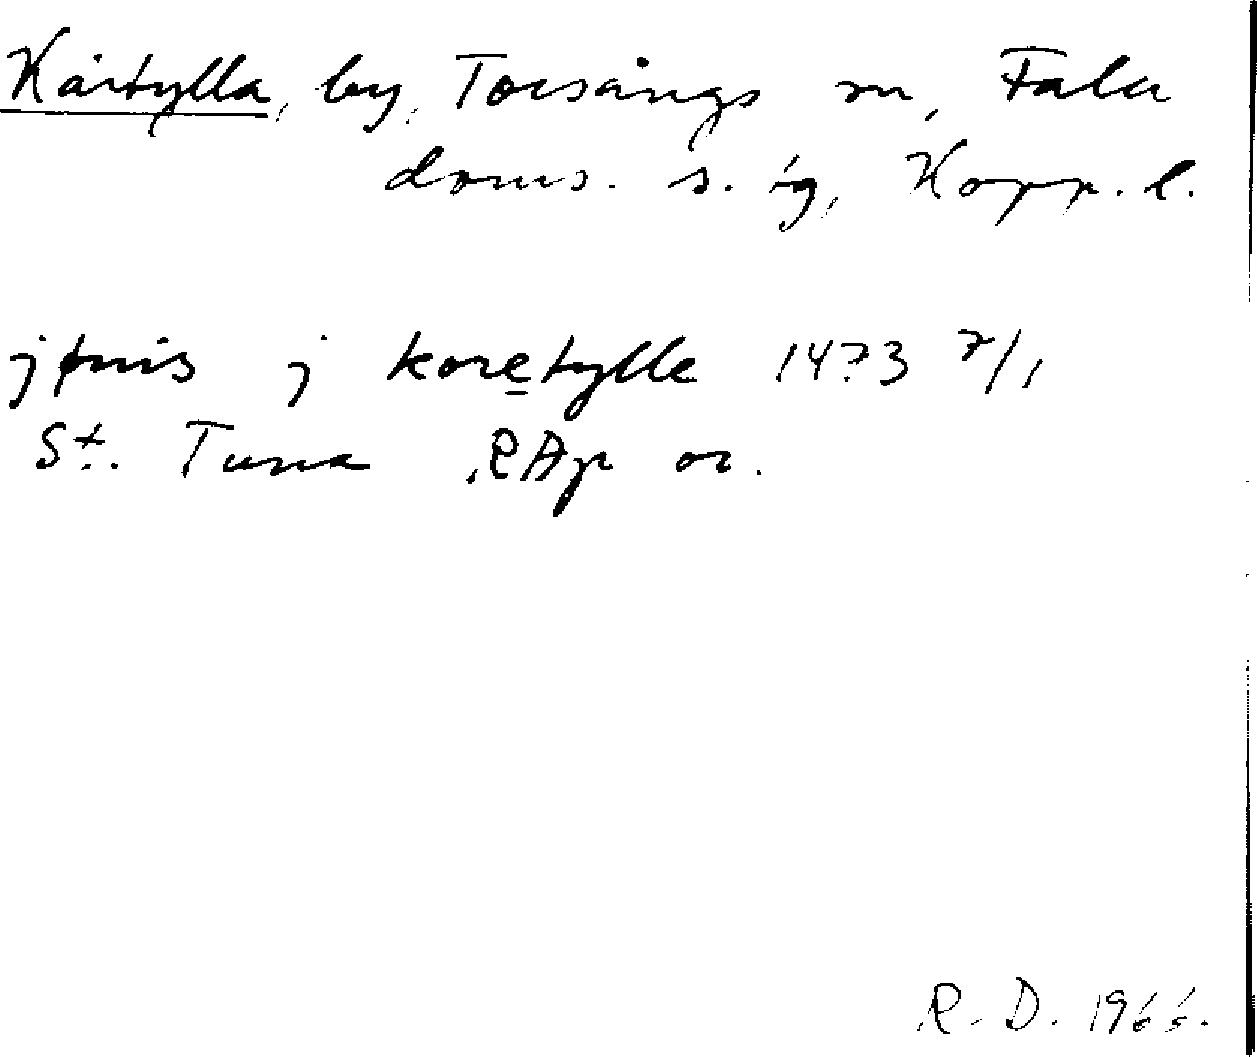 Kårtylla, by, Torsångs sn, Falu
doms. s. ig, Kopp. l.
jfnis j koretylle 1473 7/1
St. Tuna RAp or.
R. D. 1966.